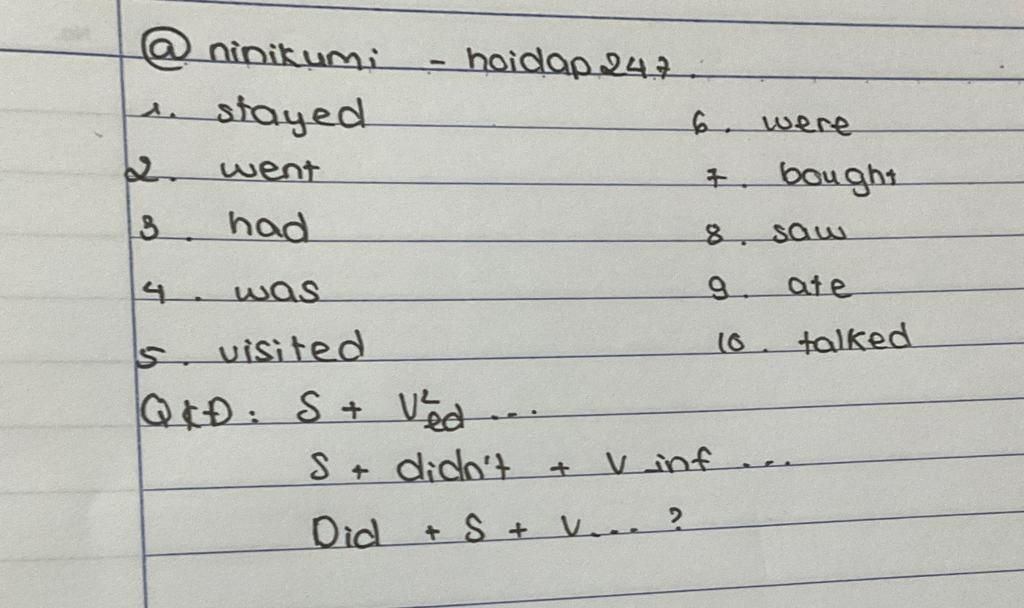 @ ninikumi - hoidap247.
1. stayed 6. were
2. went 7. bought
3. had 8. saw
4. was 9. ate
5. visited 10. talked
QKĐ: S + V²ed ...
S + didn't + V inf ...
Did + S + V... ?